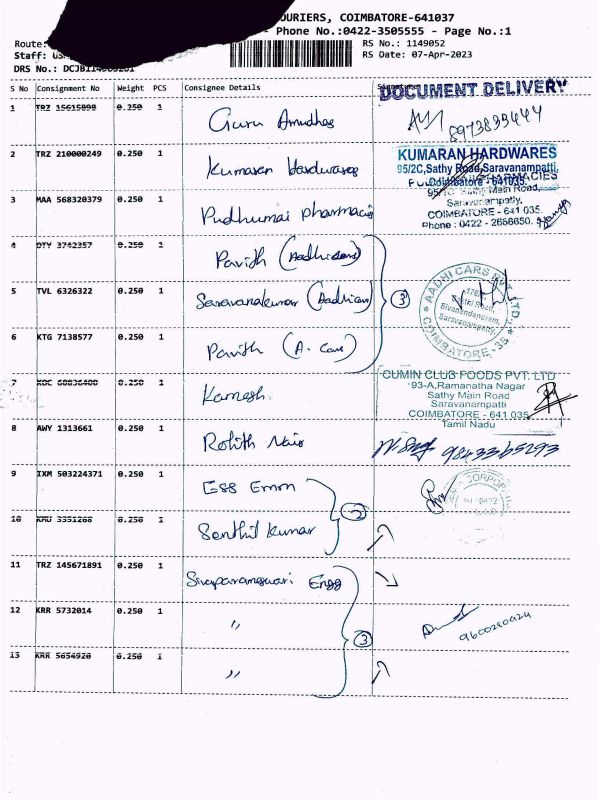 OURIERS, COIMBATORE-641037
- Phone No.:0422-3505555 - Page No.:1
Route:
RS No.: 1149052
Staff:
RS Date: 07-Apr-2023
DRS No.:
S No Consignment No Weight PCS Consignee Details
DOCUMENT DELIVERY
1 TRZ 15615898 0.250 1 Guru Amudhas 8973899444
2 TRZ 210000249 0.250 1 Kumaran Hardwares
KUMARAN HARDWARES
95/2C, Sathy Road, Saravanampatti,
Coimbatore - 641035.
3 MAA 568320379 0.250 1 Pudhumai Pharmacies
PHARMACIES
Sathy Main Road,
Saravanampatty,
COIMBATORE - 641 035.
Phone : 0422 - 2666650.
4 DTY 3742357 0.250 1 Pavith
5 TVL 6326322 0.250 1 Saravanakumar (Aadhicars) 3
AADHI CARS PVT. LTD.
Sathi Road,
Sivanandapuram,
Saravanampatty,
COIMBATORE - 35
6 KTG 7138577 0.250 1 Pavith (A. Cars)
7 KOC 0.250 1 Kamesh
CUMIN CLUB FOODS PVT. LTD
93-A, Ramanatha Nagar
Sathy Main Road
Saravanampatti
COIMBATORE - 641 035
Tamil Nadu
8 AWY 1313661 0.250 1 Rohith Nair 9843365293
9 IXM 503224371 0.250 1 Ess Emm
2
10 KMU 3351268 0.250 1 Senthil Kumar
11 TRZ 145671891 0.250 1 Sivaparameswari Engg
12 KRR 5732014 0.250 1 〃 3 9600280424
13 KRR 5654926 0.250 1 〃